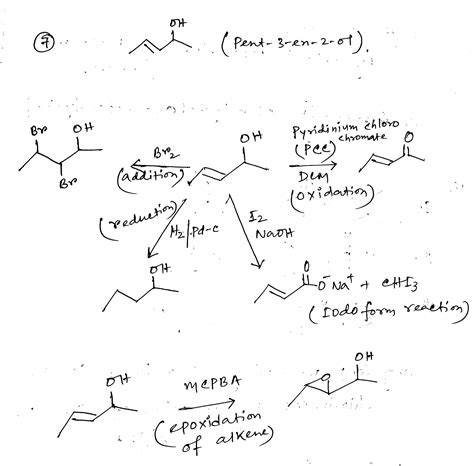 7
OH
(Pent-3-en-2-ol).
Br OH
Br
Br2
(addition)
OH
Pyridinium chloro
chromate
(PCC)
DCM
(oxidation)
O
(reduction)
H2/Pd-C
I2
NaOH
OH
O
O⁻Na⁺ + CHI3
(Iodoform reaction)
OH
mCPBA
(epoxidation
of alkene)
O
OH